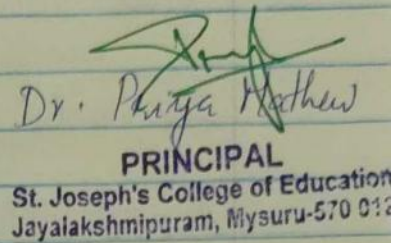 Dr. Priya Mathew
PRINCIPAL
St. Joseph's College of Education
Jayalakshmipuram, Mysuru-570 012